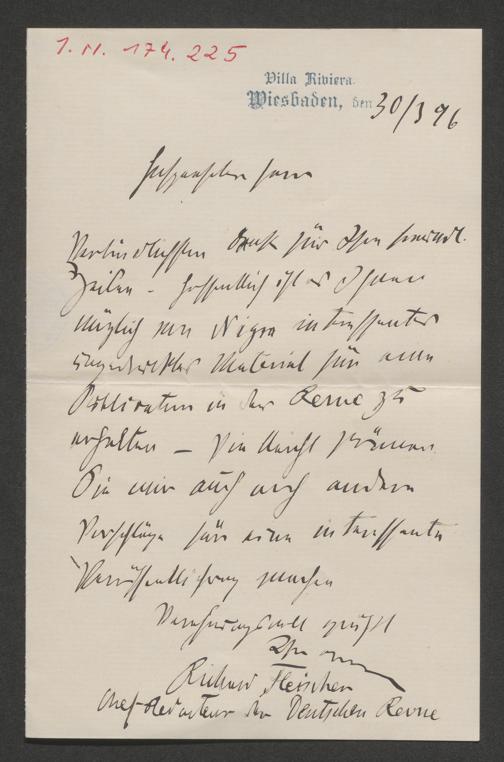 I. N. 174.225
Villa Riviera.
Wiesbaden, den 30/3 96
Hochgeehrter Herr
Verbindlichsten Dank für Ihre freundl.
Zeilen - Hoffentlich ist es Ihnen
möglich von Nigra interessantes
ungedrucktes Material für eine
Publication in der Revue zu
erhalten – Vielleicht können
Sie mir auch noch andere
Vorschläge für eine interessante
Veröffentlichung machen
Verehrungsvoll grüßt
Ihr
Richard Fleischer
Chef-Redacteur der Deutschen Revue